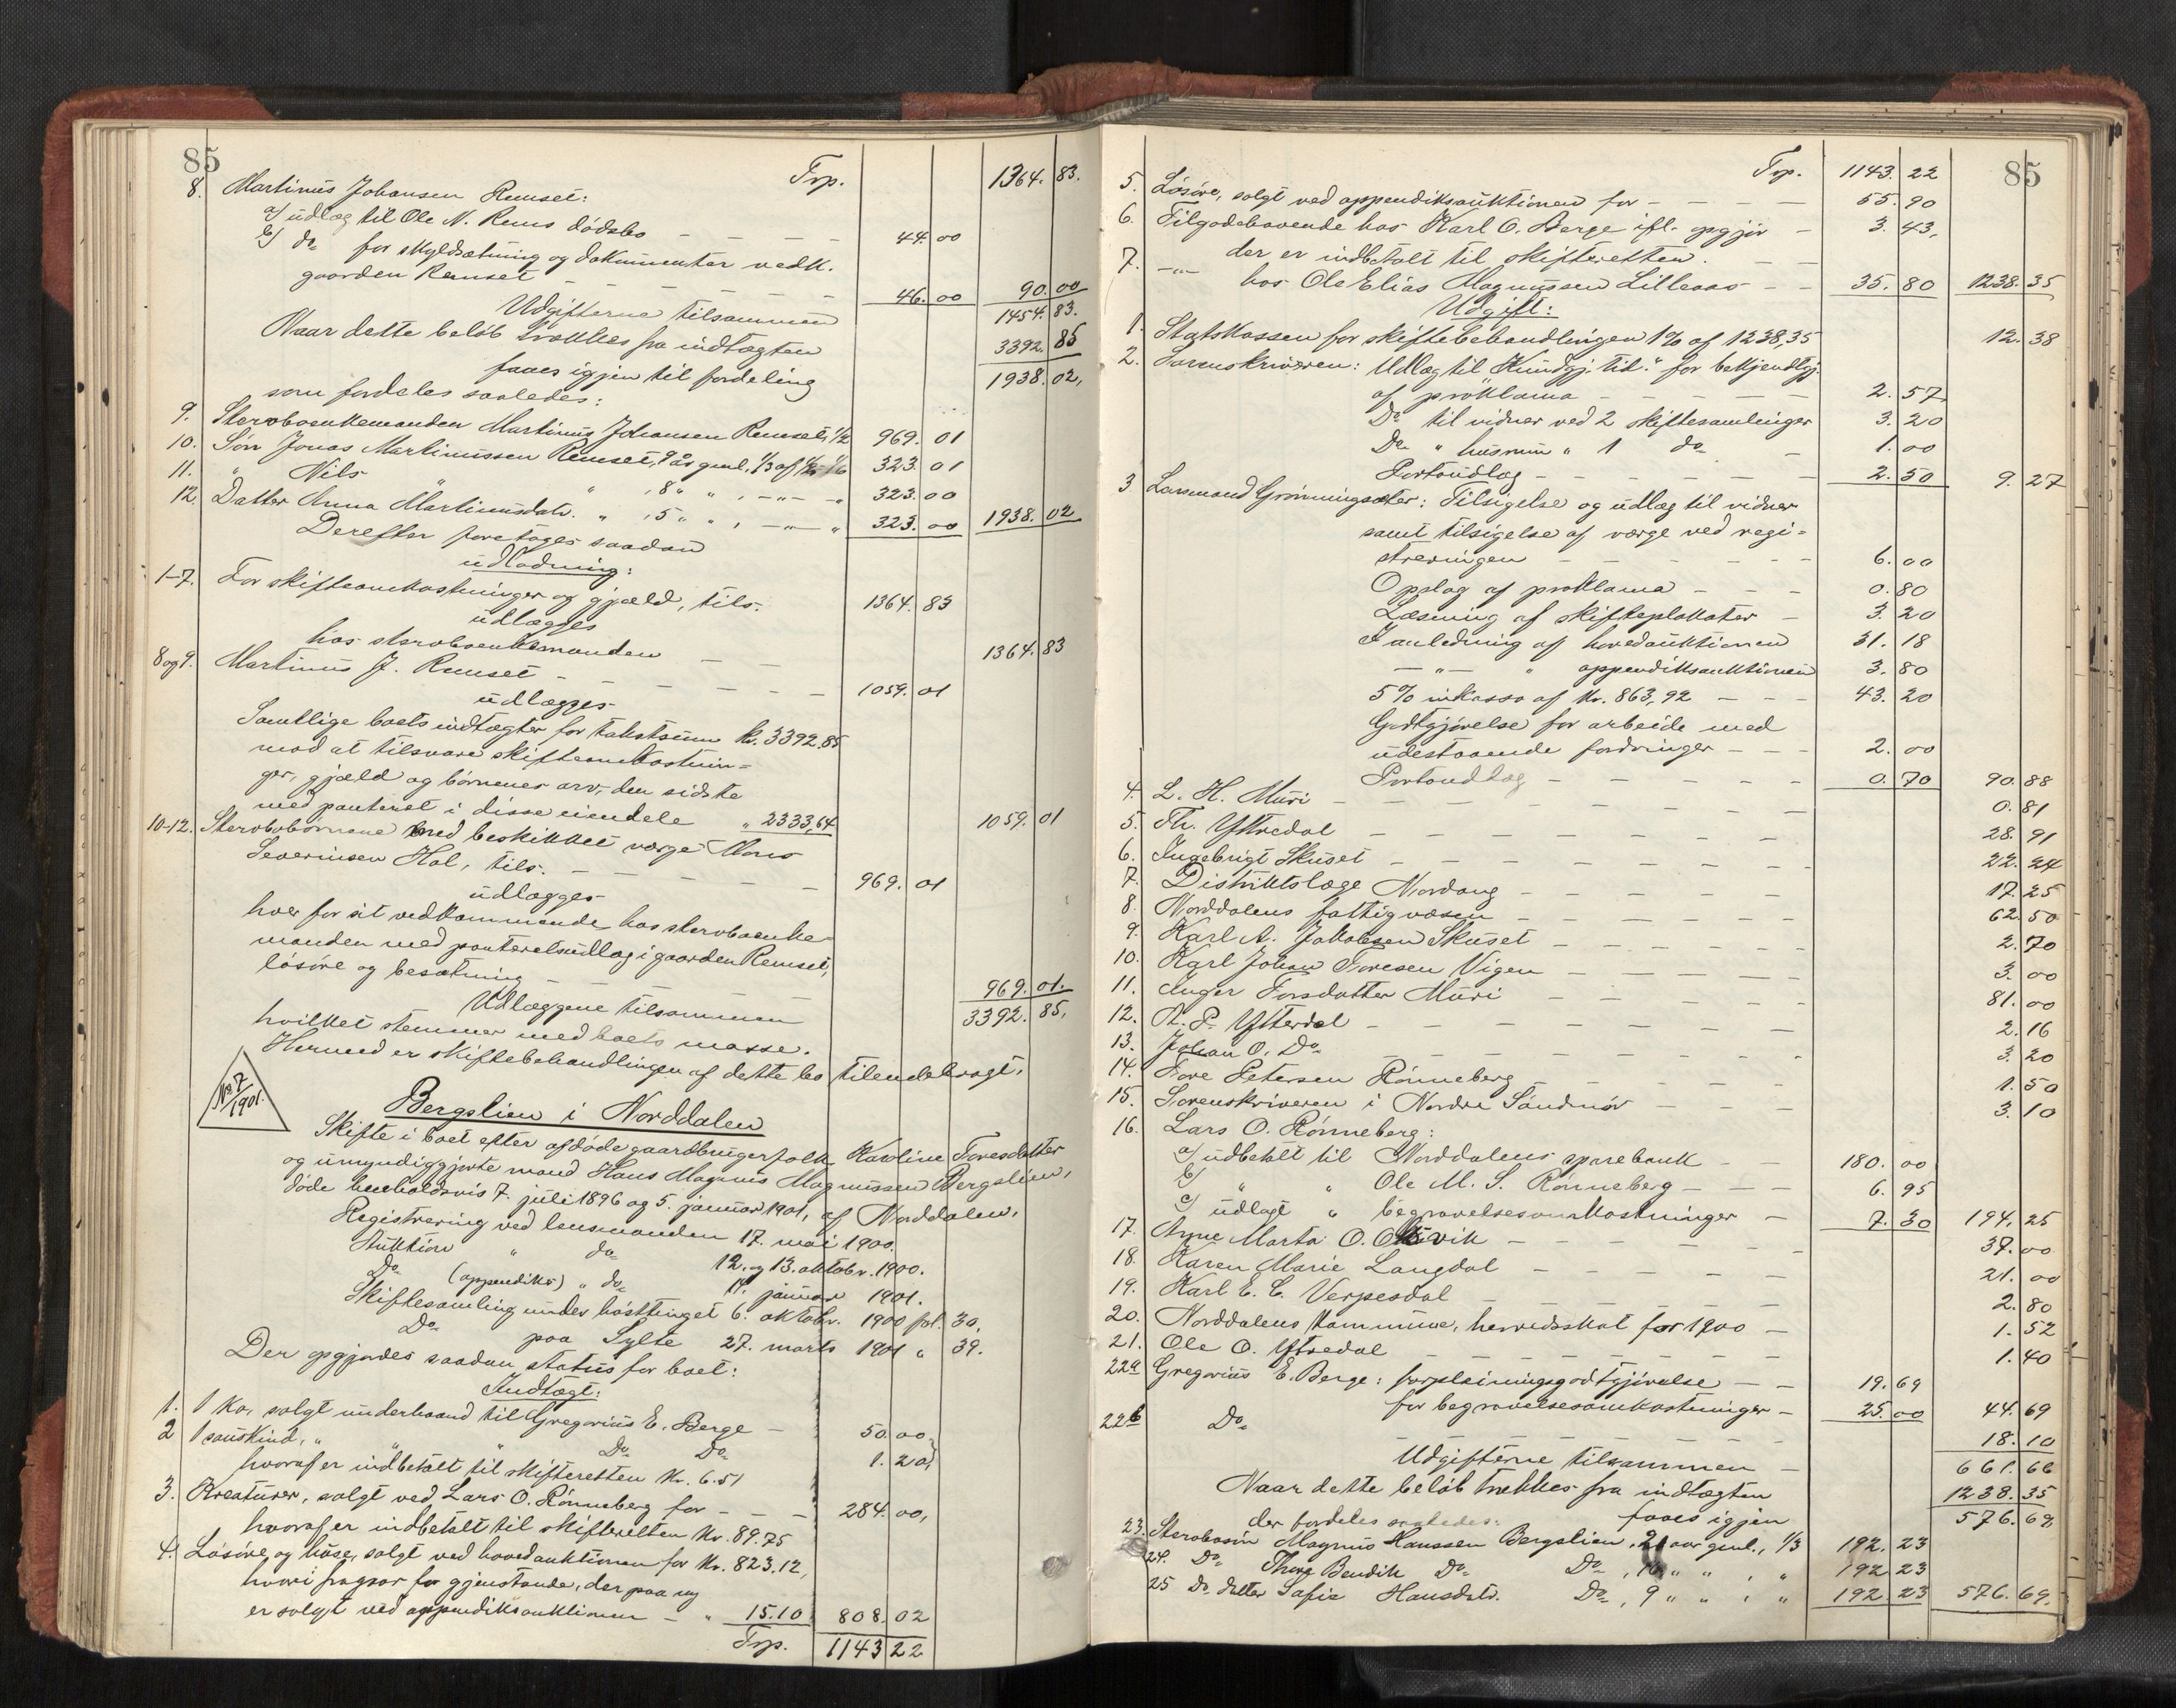 85
Trp. 1364. 83.
8. Martinus Johansen Remset:
a/ udlæg til Ole N. Rems dødsbo — 44. 00
b/ do for skyldsætning og dokumenter vedk.
gaarden Remset — 46. 00 90. 00
Udgifterne tilsammen 1454. 83.
Naar dette beløb trækkes fra indtægten 3392. 85
faaes igjen til fordeling 1938. 02,
som fordeles saaledes:
9. Stervboenkemanden Martinus Johansen Remset, 1/2 969. 01
10. Søn Jonas Martinussen Remset, 9 år gml. 1/3 af 1/2 = 1/6 323. 01
11. " Nils " " , 8 " " , -"- " 323. 00
12. Datter Anna Martinusdatr. " , 5 " " , -"- " 323. 00 1938. 02
Derefter foretages saadan
udlodning:
1-7. For skifteomkostninger og gjæld, tils. 1364. 83
udlægges
hos stervboenkemanden — 1364. 83
8 og 9. Martinus J. Remset — 1059. 01
udlægges
Samtlige boets indtægter for takstsum kr. 3392,85
mod at tilsvare skifteomkostnin-
ger, gjæld og børnenes arv, den sidste
med panteret i disse eiendele " 2333,84 1059. 01
10-12. Stervbobørnene med beskikket værge Mons
Severinsen Hol, tils. — 969. 01
udlægges
hver for sit vedkommende hos stervboenke-
manden med panteretsudlæg i gaarden Remset,
løsøre og besætning — 969. 01.
Udlæggene tilsammen 3392. 85,
hvilket stemmer med boets masse.
Hermed er skiftebehandlingen af dette bo tilendebragt.
No. 7/1901.
Bergslien i Norddalen
Skifte i boet efter afdøde gaardbrugerfolk, Karline Toresdatter
og umyndiggjorte mand Hans Magnus Magnussen Bergslien,
døde henholdsvis 7. juli 1896 og 5. januar 1901, af Norddalen.
Registrering ved lensmanden 17. mai 1900.
Auktion " do 12. og 13. oktobr. 1900.
Do (appendiks) " do 11. januar 1901.
Skiftesamling under høsttinget 6. oktobr. 1900 fol. 30,
Do paa Sylte 27. marts 1901 " 39.
Der opgjordes saadan status for boet:
Indtægt:
1. 1 ko, solgt underhaand til Gregorius E. Berge — 50. 00,
2 1 saueskind, " " " Do Do 1. 20,
hvoraf er indbetalt til skifteretten kr. 6.51
3. Kreaturer, solgt ved Lars O. Rønneberg for — 284. 00,
hvoraf er indbetalt til skifteretten kr. 89.75
4. Løsøre og huse, solgt ved hovedauktionen for kr. 823.12,
hvori fragaar for gjenstande, der paa ny
er solgt ved appendiksauktionen — " 15.10 808. 02
Trp. 1143 22
Trp. 1143. 22 85
5. Løsøre, solgt ved appendiksauktionen for — 55. 90
6. Tilgodehavende hos Karl O. Berge ifl. opgjør — 3. 43,
der er indbetalt til skifteretten.
7. -"- hos Ole Elias Magnussen Lilleaas — 35. 80 1238. 35
Udgift:
1. Statskassen for skiftebehandlingen 1% af 1238,35 12. 38
2. Sorenskriveren: Udlæg til "Kundgj. tid." for bekjendtgj.
af proklama — 2. 57
Do til vidner ved 2 skiftesamlinger 3. 20
Do " husrum " 1 do — 1. 00
Portoudlæg — 2. 50 9. 27
3 Lensmand Grønningsæter: Tilsigelse og udlæg til vidner
samt tilsigelse af værge ved regi-
streringen — 6. 00
Opslag af proklama — 0. 80
Læsning af skifteplakater — 3. 20
I anledning af hovedauktionen 31. 18
-"- " appendiksauktionen 3. 80
5% inkasso af kr. 863,92 — 43. 20
Godtgjørelse for arbeide med
udestaaende fordringer — 2. 00
Portoudlæg — 0. 70 90. 88
4. L. H. Muri — 0. 81
5. Th. Yttredal — 28. 91
6. Ingebrigt Skuset — 22. 24
7. Distriktslæge Nordang — 17. 25
8. Norddalens fattigvæsen — 62. 50
9. Karl A. Jakobsen Skuset — 2. 70
10. Karl Johan Toresen Vigen — 3. 00
11. Inger Torsdatter Muri — 81. 00
12. A. P. Ytterdal — 2. 16
13. Johan O. Do — 3. 20
14. Tore Petersen Rønneberg — 1. 50
15. Sorenskriveren i Nordre Søndmør — 3. 10
16. Lars O. Rønneberg:
a/ udbetalt til Norddalens sparebank — 180. 00
b/ " " Ole M. S. Rønneberg — 6. 95
c/ udlagt " begravelsesomkostninger — 7. 30 194. 25
17. Anne Marta O. — 37. 00
18. Karen Marie Langdal — 21. 00
19. Karl E. E. Verpesdal — 2. 80
20. Norddalens kommune, herredsskat for 1900 — 1. 52
21. Ole O. Yttredal — 1. 40
22a Gregorius E. Berge: forpleiningsgodtgjørelse — 19. 69
for begravelsesomkostninger — 25. 00 44. 69
22b Do — 18. 10
Udgifterne tilsammen — 661. 66
Naar dette beløb trækkes fra indtægten 1238. 35
faaes igjen 576. 69,
der fordeles saaledes:
23. Stervbosøn Magnus Hanssen Bergslien, 21 aar gml., 1/3 192. 23
24. Do Thore Bendik Do Do, 16 " " , " 192 23
25 Do datter Sofie Hansdatr. Do, 9 " " , " 192. 23 576. 69.